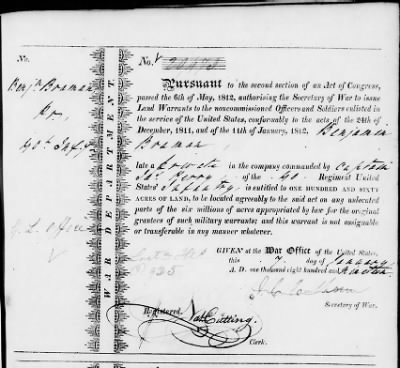 No.
No.
Benjn Boaman
Pr.
40th Infy
WAR DEPARTMENT.
Pursuant to the second section of an Act of Congress,
passed the 6th of May, 1812, authorising the Secretary of War to issue
Land Warrants to the noncommissioned Officers and Soldiers enlisted in
the service of the United States, conformably to the acts of the 24th of
December, 1811, and of the 11th of January, 1812, Benjamin
Boaman
late a private in the company commanded by Captain
Jas Perry of the 40 Regiment United
States Infantry, is entitled to ONE HUNDRED AND SIXTY
ACRES OF LAND, to be located agreeably to the said act on any unlocated
parts of the six millions of acres appropriated by law for the original
grantees of such military warrants and this warrant is not assignable
or transferable in any manner whatever.
GIVEN at the War Office of the United States,
this 7 day of January
A. D. one thousand eight hundred and
Secretary of War.
Registered.
Nat Cutting.
Clerk.